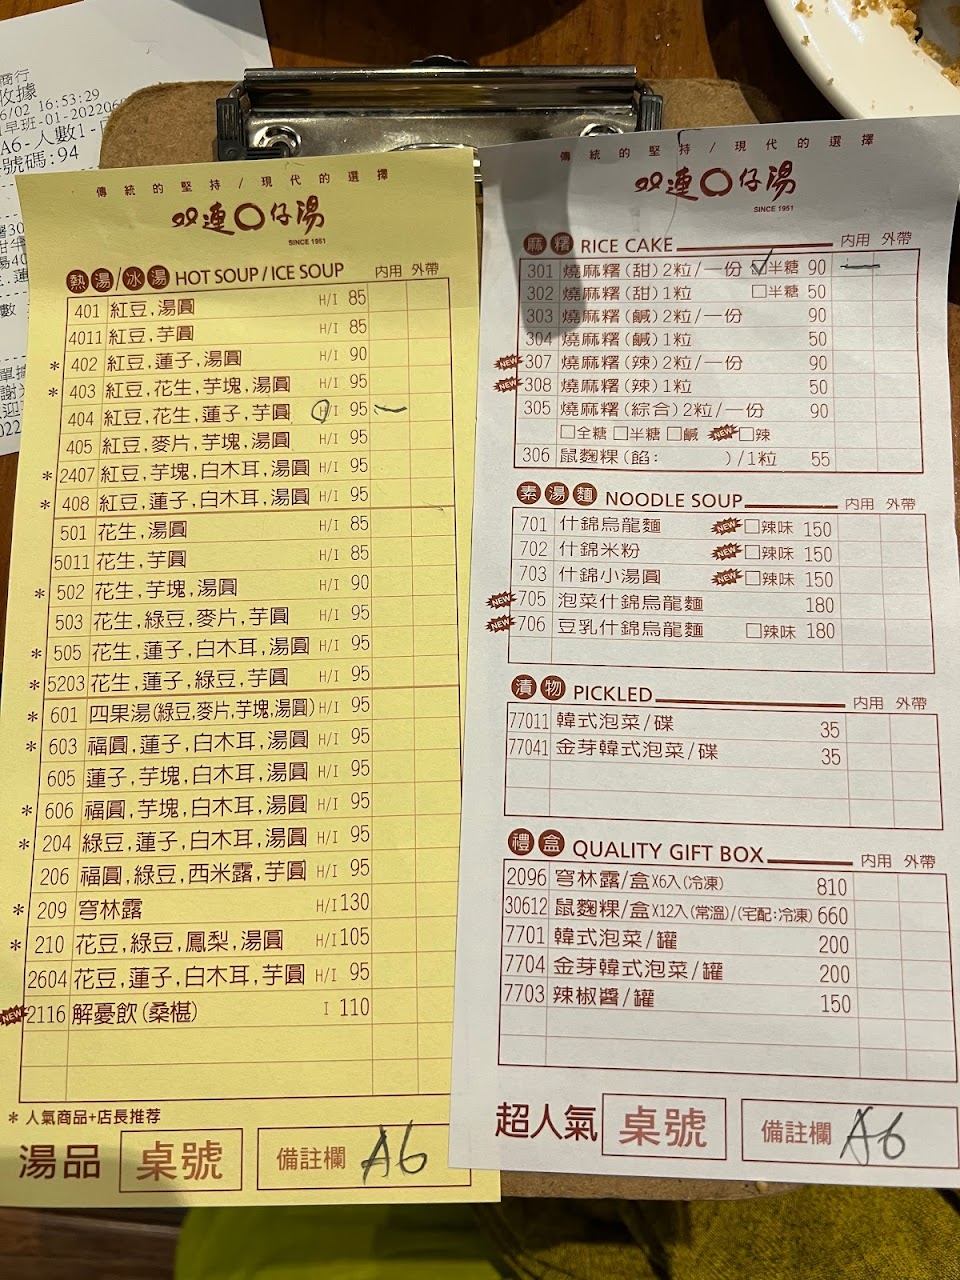 商行
收據
6/02 16:53:29
早班-01-2022060
A6-人數1-
號碼:94
傳統的堅持/現代的選擇
双連〇仔湯
SINCE 1951
熱湯/冰湯 HOT SOUP/ICE SOUP 內用 外帶
401 紅豆,湯圓 H/I 85
4011 紅豆,芋圓 H/I 85
* 402 紅豆,蓮子,湯圓 H/I 90
* 403 紅豆,花生,芋塊,湯圓 H/I 95
404 紅豆,花生,蓮子,芋圓 H/I 95 一
405 紅豆,麥片,芋塊,湯圓 H/I 95
* 2407 紅豆,芋塊,白木耳,湯圓 H/I 95
* 408 紅豆,蓮子,白木耳,湯圓 H/I 95
501 花生,湯圓 H/I 85
5011 花生,芋圓 H/I 85
* 502 花生,芋塊,湯圓 H/I 90
503 花生,綠豆,麥片,芋圓 H/I 95
* 505 花生,蓮子,白木耳,湯圓 H/I 95
* 5203 花生,蓮子,綠豆,芋圓 H/I 95
* 601 四果湯(綠豆,麥片,芋塊,湯圓) H/I 95
* 603 福圓,蓮子,白木耳,湯圓 H/I 95
605 蓮子,芋塊,白木耳,湯圓 H/I 95
* 606 福圓,芋塊,白木耳,湯圓 H/I 95
* 204 綠豆,蓮子,白木耳,湯圓 H/I 95
206 福圓,綠豆,西米露,芋圓 H/I 95
* 209 穹林露 H/I 130
* 210 花豆,綠豆,鳳梨,湯圓 H/I 105
2604 花豆,蓮子,白木耳,芋圓 H/I 95
NEW 2116 解憂飲(桑椹) I 110
* 人氣商品+店長推荐
湯品 桌號 備註欄 A6
傳統的堅持/現代的選擇
双連〇仔湯
SINCE 1951
麻糬 RICE CAKE 內用 外帶
301 燒麻糬(甜)2粒/一份 ☑半糖 90 一
302 燒麻糬(甜)1粒 □半糖 50
303 燒麻糬(鹹)2粒/一份 90
304 燒麻糬(鹹)1粒 50
NEW 307 燒麻糬(辣)2粒/一份 90
NEW 308 燒麻糬(辣)1粒 50
305 燒麻糬(綜合)2粒/一份 90
□全糖 □半糖 □鹹 NEW □辣
306 鼠麴粿(餡: )/1粒 55
素湯麵 NOODLE SOUP 內用 外帶
701 什錦烏龍麵 NEW □辣味 150
702 什錦米粉 NEW □辣味 150
703 什錦小湯圓 NEW □辣味 150
NEW 705 泡菜什錦烏龍麵 180
NEW 706 豆乳什錦烏龍麵 □辣味 180
漬物 PICKLED 內用 外帶
77011 韓式泡菜/碟 35
77041 金芽韓式泡菜/碟 35
禮盒 QUALITY GIFT BOX 內用 外帶
2096 穹林露/盒X6入(冷凍) 810
30612 鼠麴粿/盒X12入(常溫)/(宅配:冷凍) 660
7701 韓式泡菜/罐 200
7704 金芽韓式泡菜/罐 200
7703 辣椒醬/罐 150
超人氣 桌號 備註欄 A6